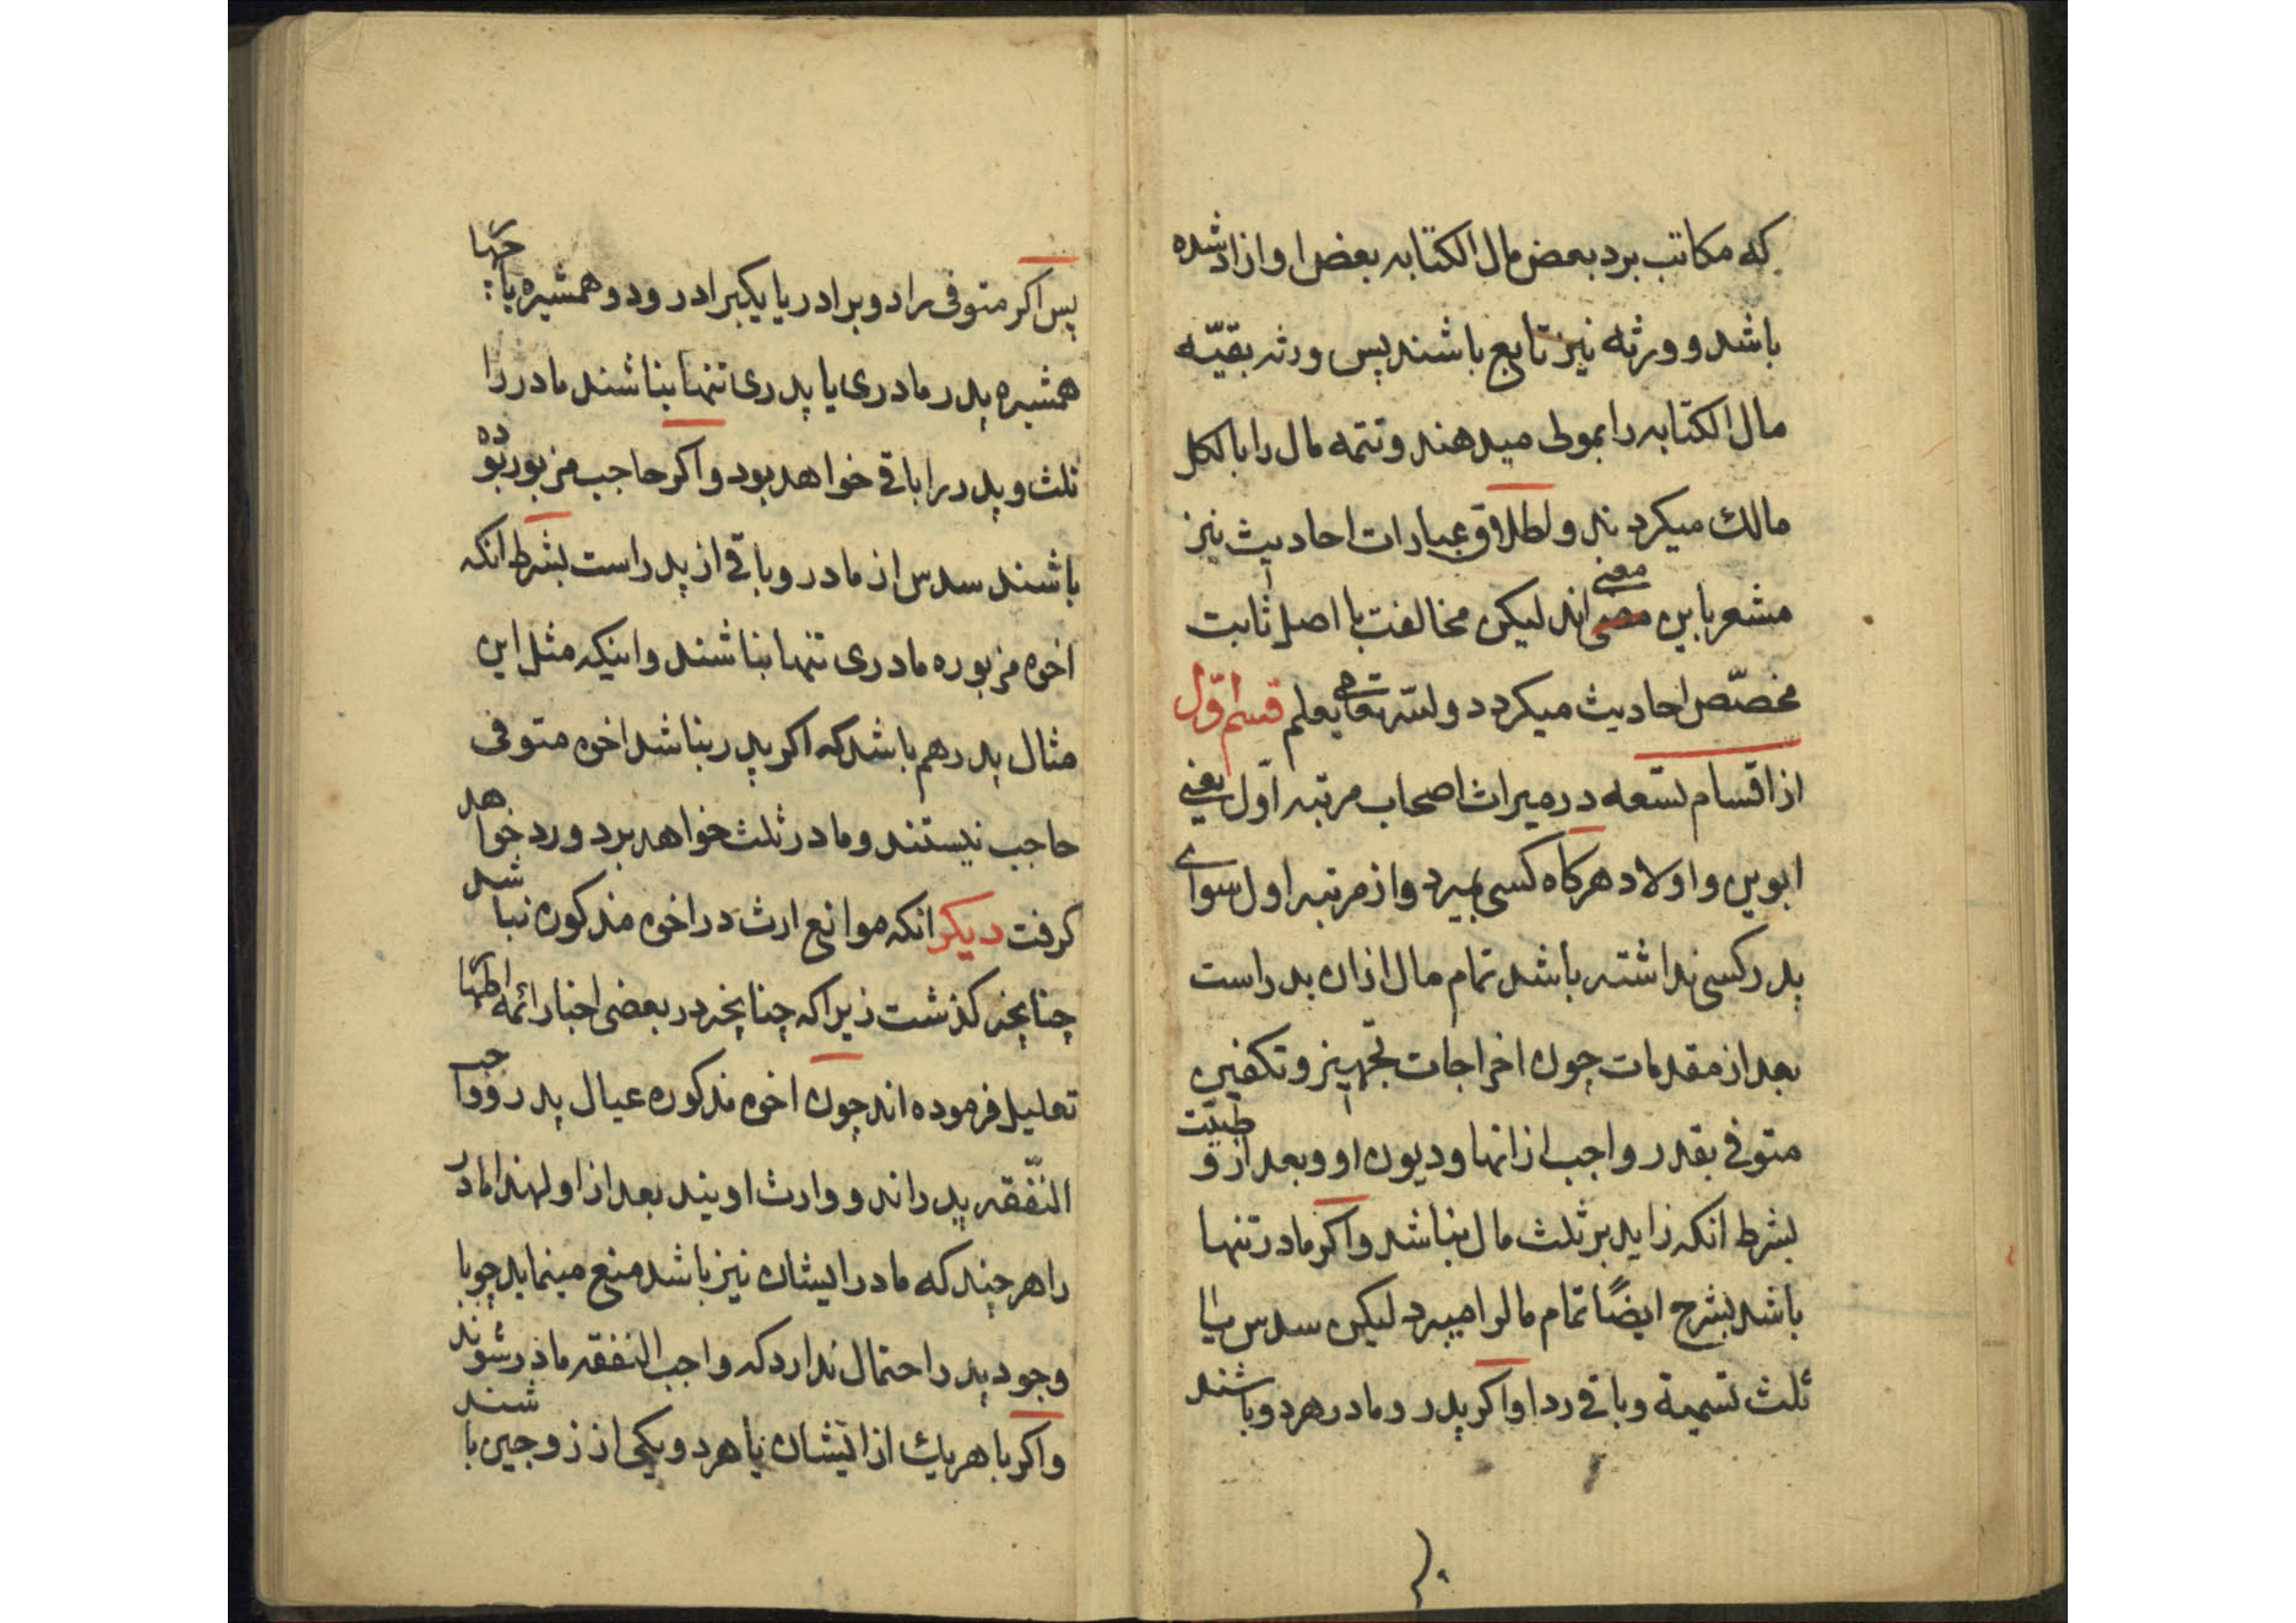 که مکاتب برد بعض مال الکتابه بعض او ازاد شده
باشد و ورثه نیز تابع باشند پس ورثه بقیّه
مال الکتابه را بمولی میدهند و تتمه مال را بالکل
مالك میکردند و اطلاق عبارات احادیث نیز
مشعر باین معنی اند لیکن مخالفت با اصل ثابت
مخصّص احادیث میکردد و لله تعالی یعلم قسم اوّل
از اقسام تسعه در میراث اصحاب مرتبه اوّل یعنی
ابوین و اولاد هرکاه کسی بمیرد و از مرتبه اول سوای
پدر کسی نداشته باشد تمام مال ازان پدر است
بعد از مقدمات چون اخراجات تجهیز و تکفین
متوفی بقدر واجب ازانها و دیون او و بعد از وصیّت
بشرط انکه زاید بر ثلث مال نباشد و اکر مادر تنها
باشد بشرح ایضًا تمام مالرا میبرد لیکن سدس یا
ثلث تسمیة و باقی ردا و اکر پدر و مادر هردو باشند
پس اکر متوفی را دو برادر یا یکبرادر و دو همشیره یا چهار
همشیره پدر مادری یا پدری تنها نباشند مادر را
ثلث و پدر را باقی خواهد بود و اکر حاجب مزبور بوده
باشند سدس از مادر و باقی از پدر است بشرط انکه
اخوه مزبوره مادری تنها نباشند و اینکه مثل این
مثال پدر هم باشد که اکر پدر نباشد اخوه متوفی
حاجب نیستند و مادر ثلث خواهد برد و رد خواهد
کرفت دیکر انکه موانع ارث در اخوه مذکوره نباشد
چنانچه کذشت زیرا که چنانچه در بعضی اخبار ائمه اطهار
تعلیل فرموده اند چون اخوه مذکوره عیال پدر و واجب
النّفقه پدر اند و وارث اویند بعد از او لهذا مادر
را هرچند که مادر ایشان نیز باشد منع مینماید چو با
وجود پدر احتمال ندارد که واجب النفقه مادر شوند
و اکر با هریك از ایشان یا هردو یکی از زوجین باشند